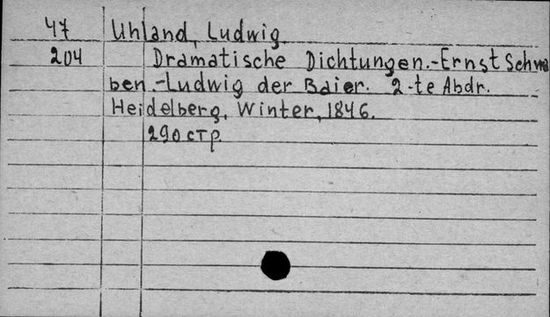 47 Uhland, Ludwig
204 Dramatische Dichtungen.-Ernst Schwa
ben.-Ludwig der Baier. 2-te Abdr.
Heidelberg, Winter, 1846.
290 стр.